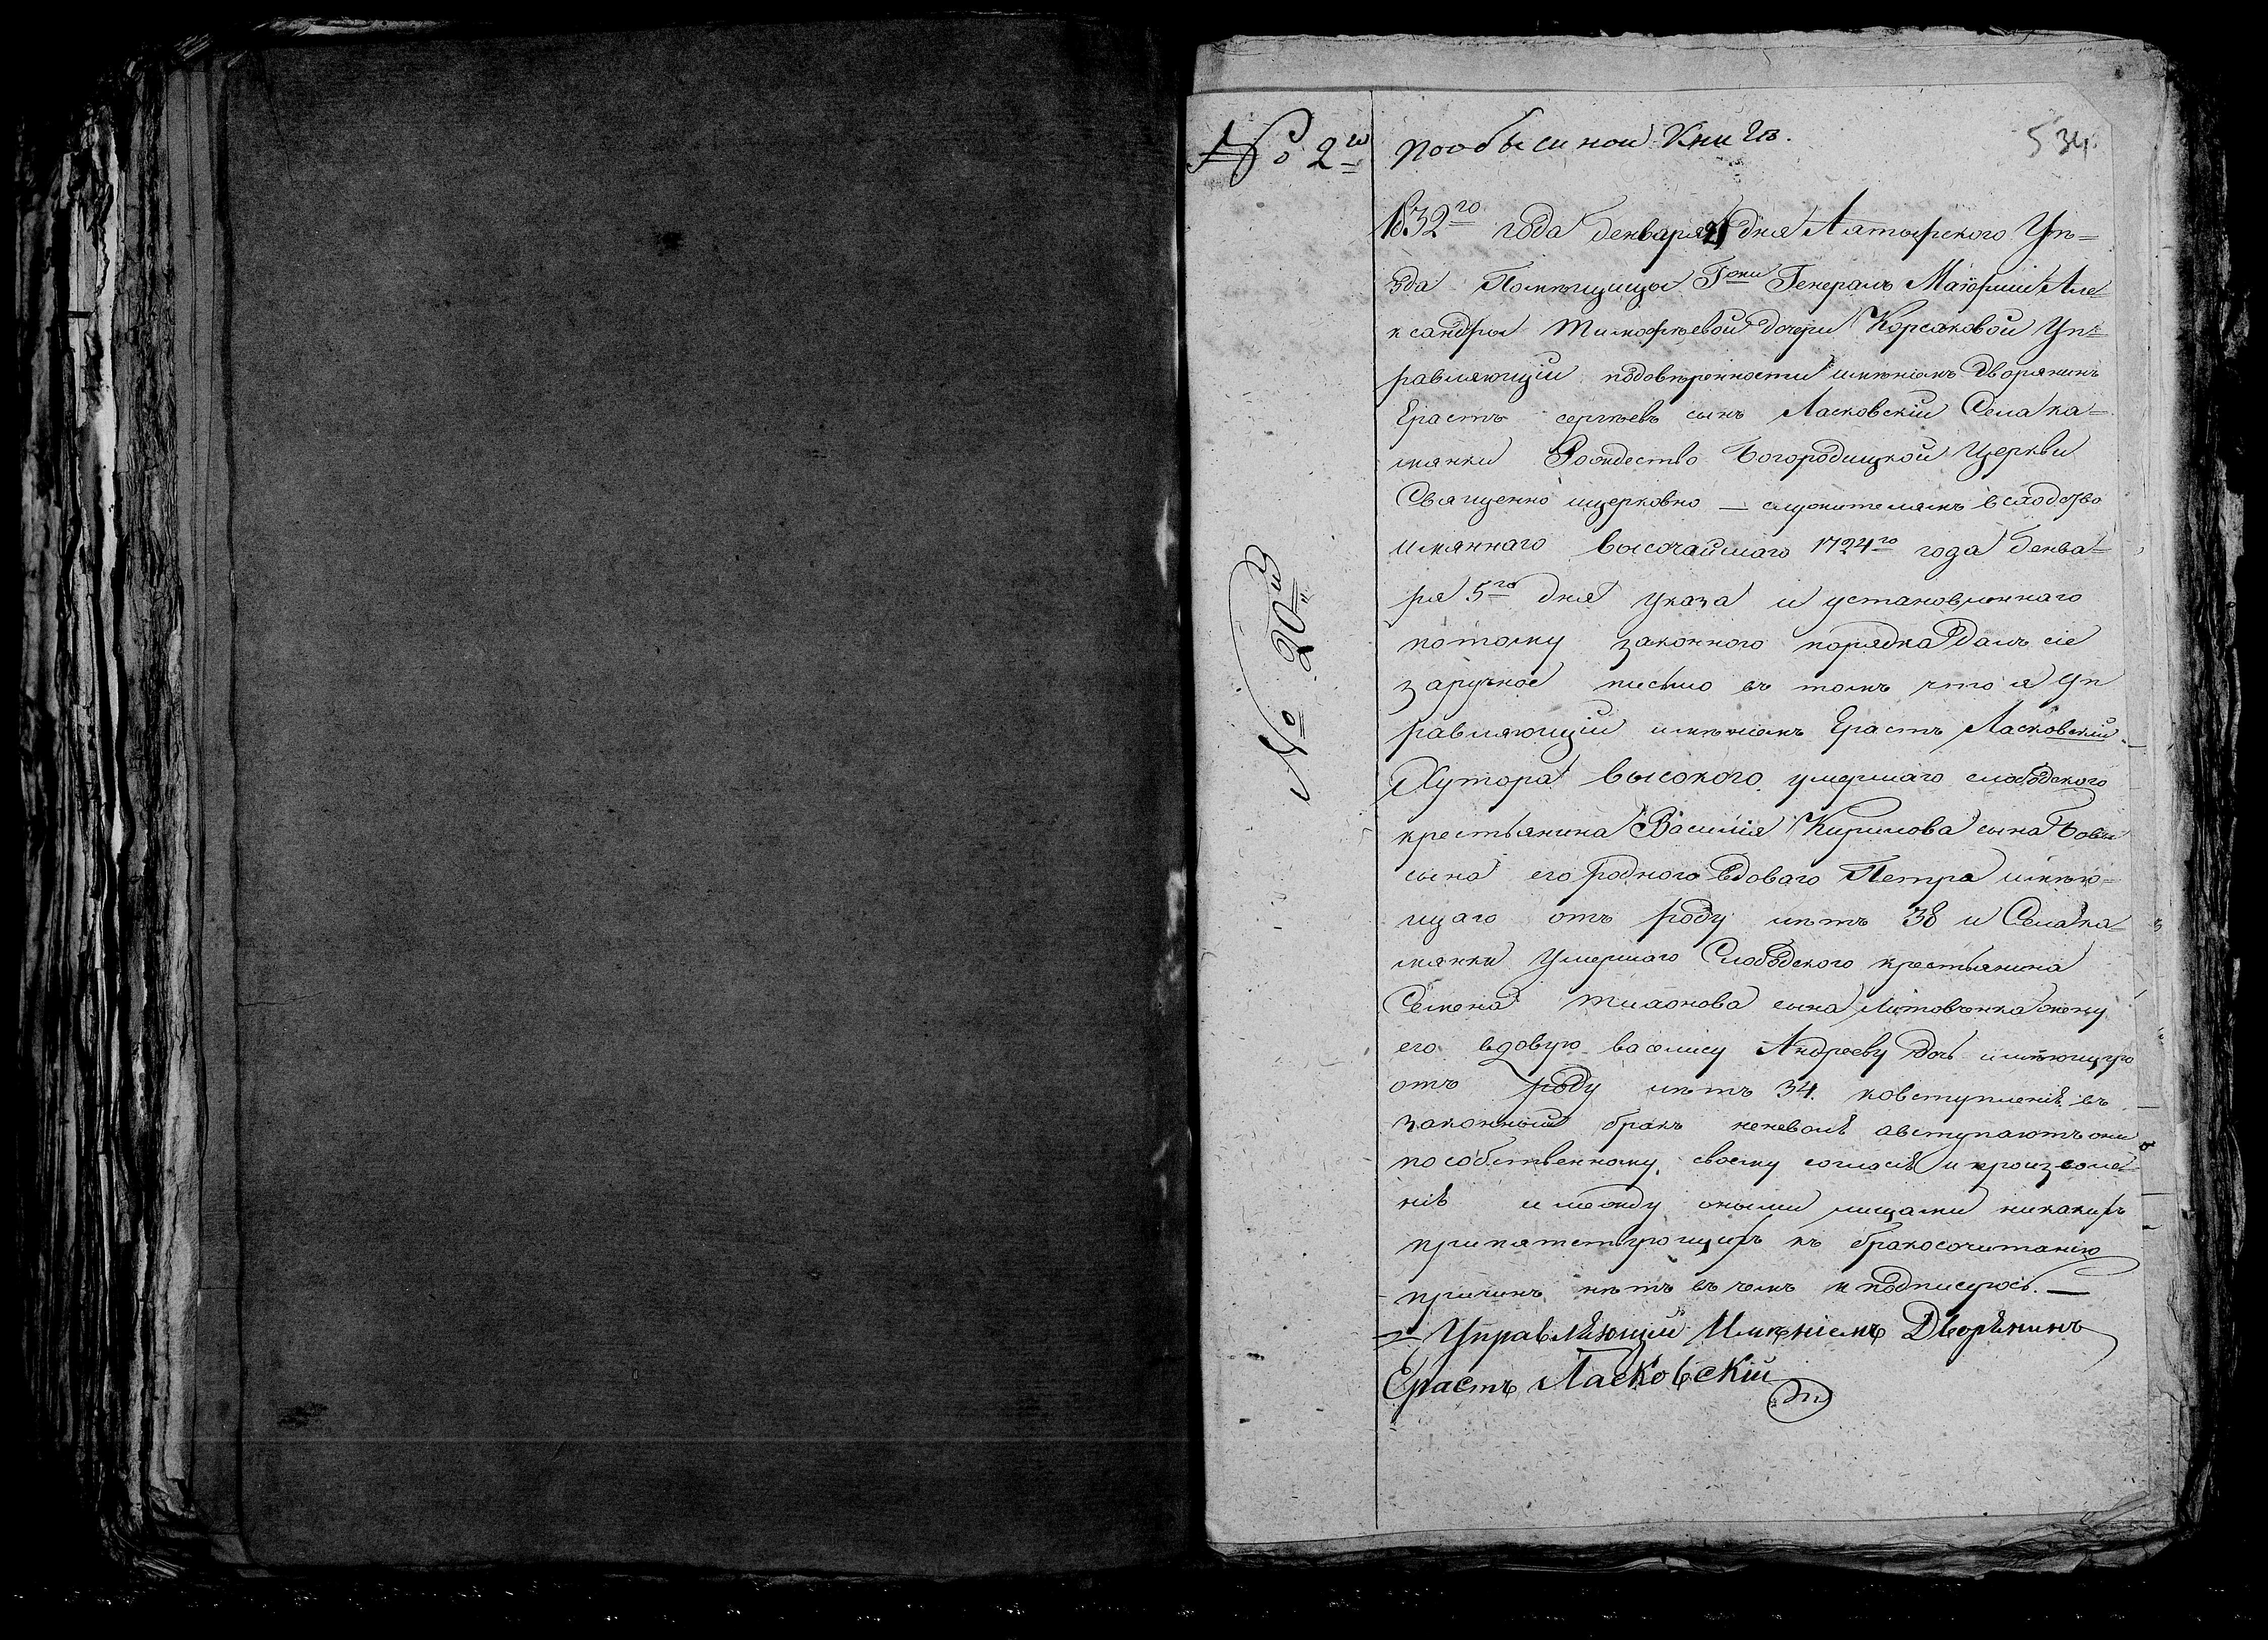 № 2й пообысной Книгѣ.
534
№ 20й
1832го года Генваря 21 дня Ахтырскаго Уѣ=
зда Помѣщицы Гжи Генералъ Маіорши Але=
ксандры Тимофѣевой дочери Корсаковой Уп=
равляющій подовѣренности имѣніемъ Дворянинъ
Ерастъ сергѣевъ сынъ Ласковскій Села ка=
мянки Рождество Богородицкой Церкви
Священно ицерковно — служителямъ всходство
имяннаго высочайшаго 1724го года Генва=
ря 5го дня указа и установленнаго
потому законного порядка Далъ сіе
заручное письмо въ томъ что я Уп
равляющій имѣніемъ Ерастъ Ласковскій
Хутора высокого умершаго слободского
крестьянина Василія Кирилова сына
сына его родного вдоваго Петра имѣю=
щаго отъ роду лѣтъ 38 и Села ка=
мянки Умершаго Слободского крестьянина
Семена сына Литовченка жену
его вдовую василису Андрееву дочь имѣющую
отъ роду лѣтъ 34. ковступленію въ
законный бракъ неневолю авступаютъ они
пособственному своему согласію и произволе=
нію имежду оными лицами никакихъ
припятствующихъ къ бракосочитанію
причинъ нѣтъ въ чемъ и подписуюсь. —
Управляющій Имѣніемъ Дворянинъ
Ерастъ Ласковскій